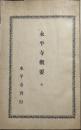 永平寺概要
永平寺發行